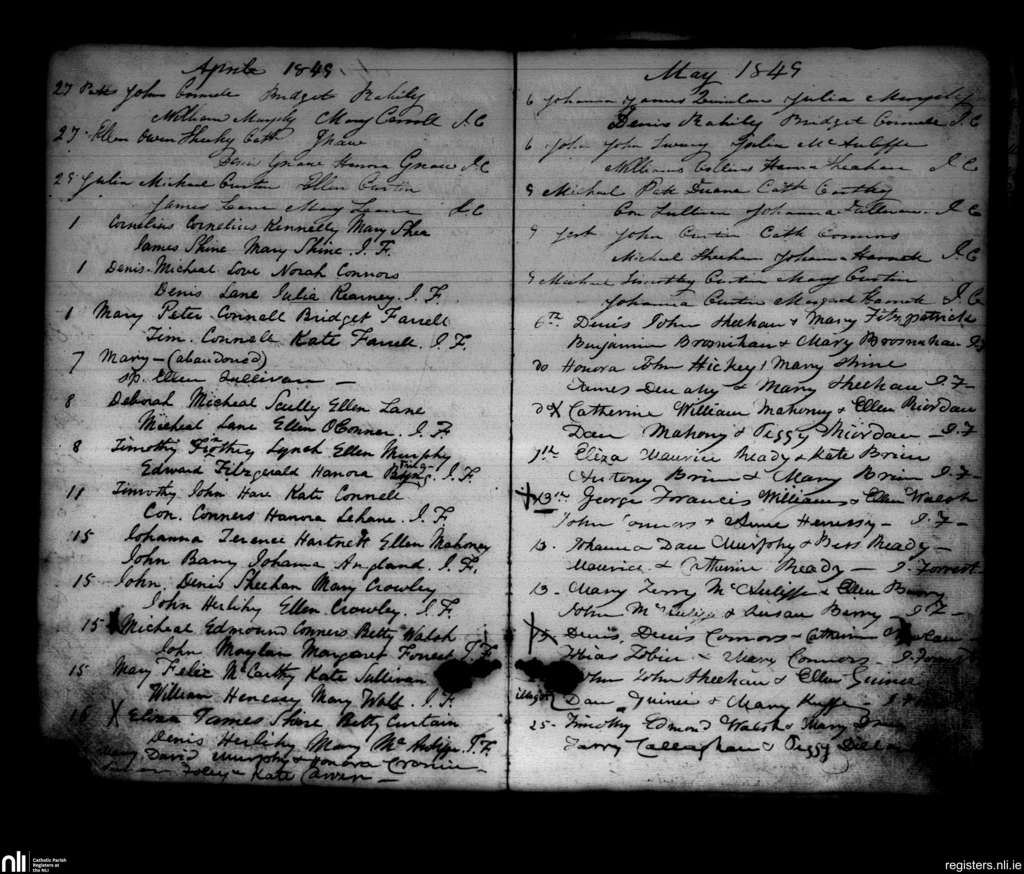 April 1849.
27 Patt John Connell Bridget Rahily
William Murphy Mary Carroll J.C
27 Ellen Owen Sheehy Cath
Denis Hanora J.C
28 Julia Michael Curtin Ellen Curtin
James Lane Mary Lane J.C
1 Cornelius Cornelius Kennelly Mary Shea
James Shine Mary Shine. J. F.
1 Denis. Micheal Love Norah Connors
Denis Lane Julia Kearney. J. F.
1 Mary Peter Connell Bridget Farrell
Tim. Connell Kate Farrell. J. F.
7 Mary — (abandoned)
sp. Ellen Sullivan —
8 Deborah Micheal Scully Ellen Lane
Micheal Lane Ellen OConnor. J. F.
8 Timothy Lynch Ellen Murphy
Edward Fitzgerald Hanora J. F.
11 Timothy John Hare Kate Connell
Con. Conners Hanora Lehane. J. F.
15 Johanna Terence Hartnett Ellen Mahoney
John Barry Johanna Angland. J. F.
15 John. Denis Sheehan Mary Crowley
John Herlihy Ellen Crowley. J. F.
15 X Micheal Edmound Conners Betty Walsh
John Moylan Margaret Forrest J. F
15 Mary Felix McCarthy Kate Sullivan
William Henessy Mary Wall. J. F.
16 X Eliza James Shine Betty Curtain
Denis Herlihy Mary J. F.
Mary David Murphy & Honora Cronin —
Foley & Kate —
May 1849
6 Johanna James Quinlan Julia
Denis Rahily Bridget Connell J. C
6 John John Julia McAuliffe
William Collins Hanna Sheehan J. C
8 Michael Patt Duane Cath Carthy
Con Sullivan Johanna Sullivan. J. C
9 John Curtin Cath Connors
Michael Sheehan Johanna J. C
9 Michael Timothy Curtin Mary Curtin
Johanna Curtin Margaret J. C
6th. Denis John Sheehan & Mary Fitzpatrick
Benjamin Brosnihan & Mary Brosnahan
do Honora John Hickey & Mary Shine
James & Mary Sheehan J. F.
do X Catherine William Mahoney & Ellen Riordan
Dan Mahony & Peggy Riordan — J. F
7th Eliza Maurice Ready & Kate Brien
Antony Brien & Mary Brien J. F —
X 13th George Francis Williams & Ellen Walsh
John Connors & Anne Henessy — J. F —
13. Johanna Dan Murphy & Bess Ready —
Maurice & Catherine Ready — J. Forrest
13. Mary Terry McAuliffe & Ellen Barry
John McAuliffe & Susan Barry — J. F —
X Denis, Denis Connors & Catherine
Tobias Tobin & Mary Connors — J. Forrest
John John Sheehan & Ellen Guinee
Dan Guinee & Mary Keeffe —
25 — Timothy Edmond Walsh & Mary
Callaghan & Peggy
nli
Catholic Parish
Registers at
the NLI
registers.nli.ie